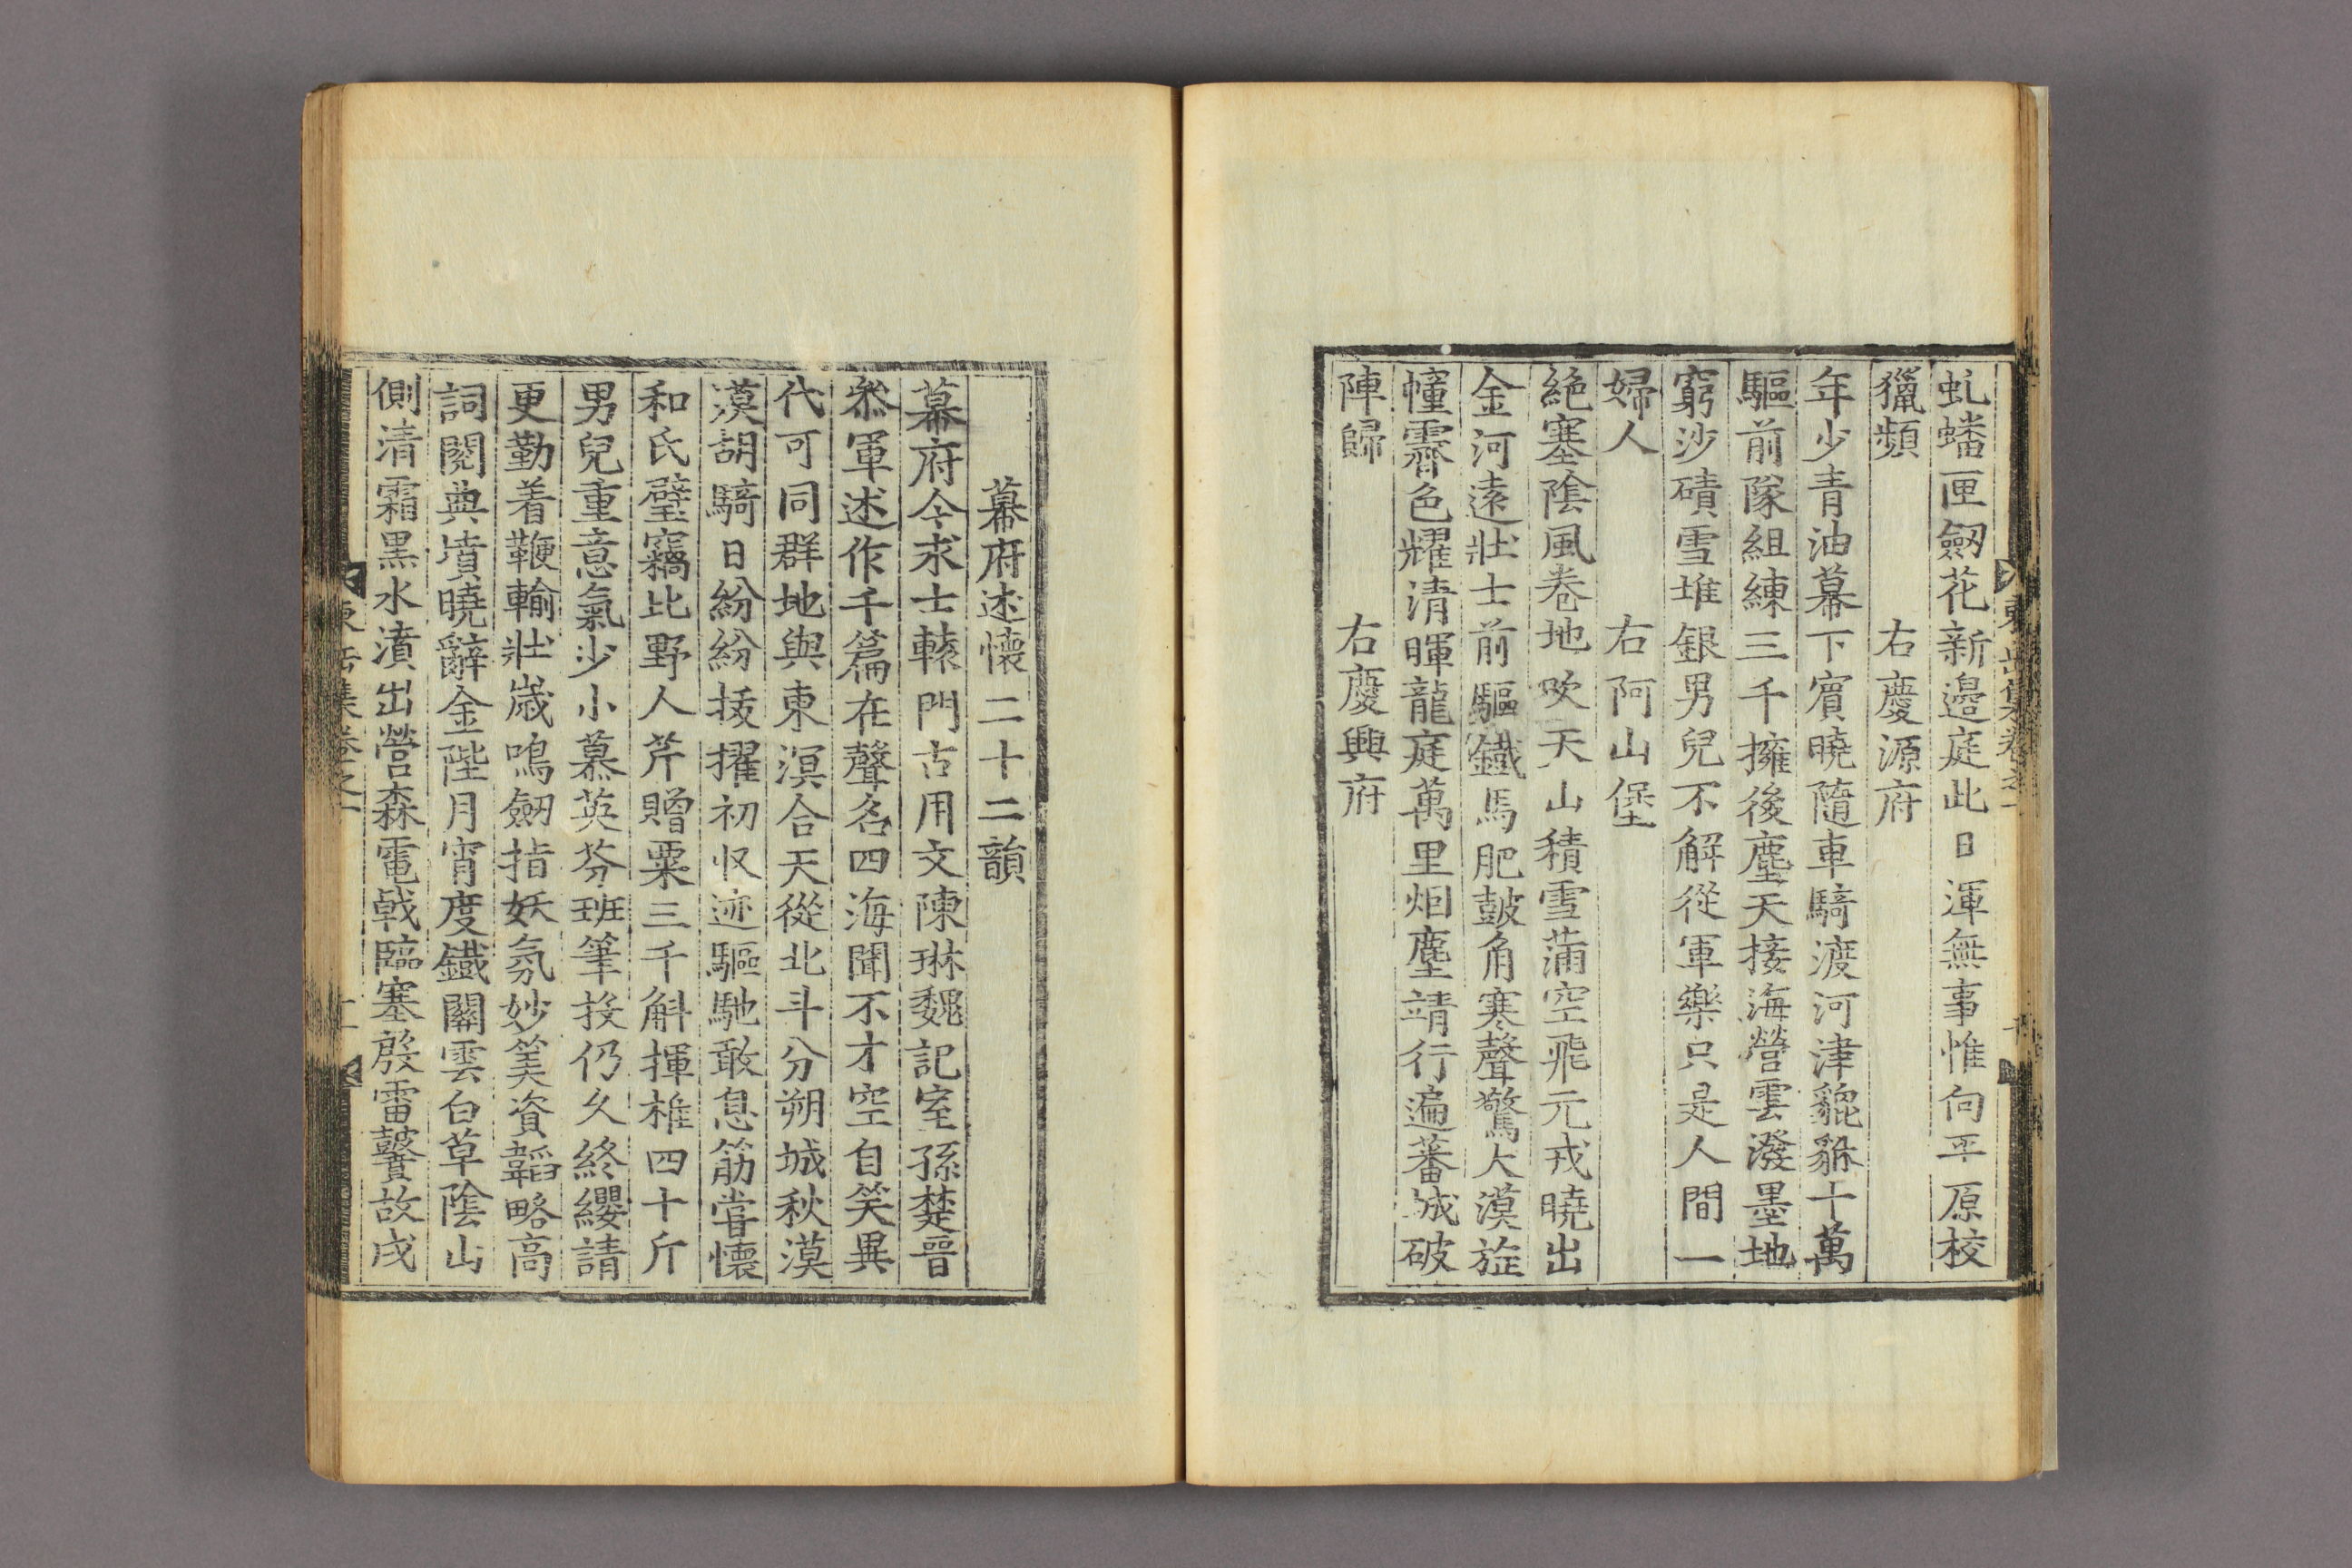 虬蟠匣劔花新邉庭此日渾無事惟向平原校
獵頻　　右慶源府
年少青油幕下賓曉隨車騎渡河津貔貅十萬
驅前隊組練三千擁後塵天接海營雲潑墨地
窮沙磧雪堆銀男兒不解從軍樂只是人間一
婦人　　右阿山堡
絶塞陰風卷地吹天山積雪蒲空飛元戎曉出
金河遠壯士前驅鐵馬肥鼓角寒聲驚大漠旌
幢霽色耀清暉龍庭萬里烟塵靖行遍蕃城破
陣歸　　右慶興府
幕府述懷二十二韻
幕府今求士轅門古用文陳琳魏記室孫楚晉
叅軍述作千篇在聲名四海聞不才空自笑異
代可同群地與東溟合天從北斗分朔城秋漠
漠胡騎日紛紛拔擢初収迹驅馳敢息筋嘗懷
和氏璧竊比野人芹贈粟三千斛揮椎四十斤
男兒重意氣少小慕英芬班筆投仍久終纓請
更勤着鞭輸壯歲鳴劔指妖氛妙筭資韜略高
詞閱典墳曉辭金陛月宵度鐵關雲白草陰山
側清霜黑水濆出營森電戟臨塞殷雷鼖故戍